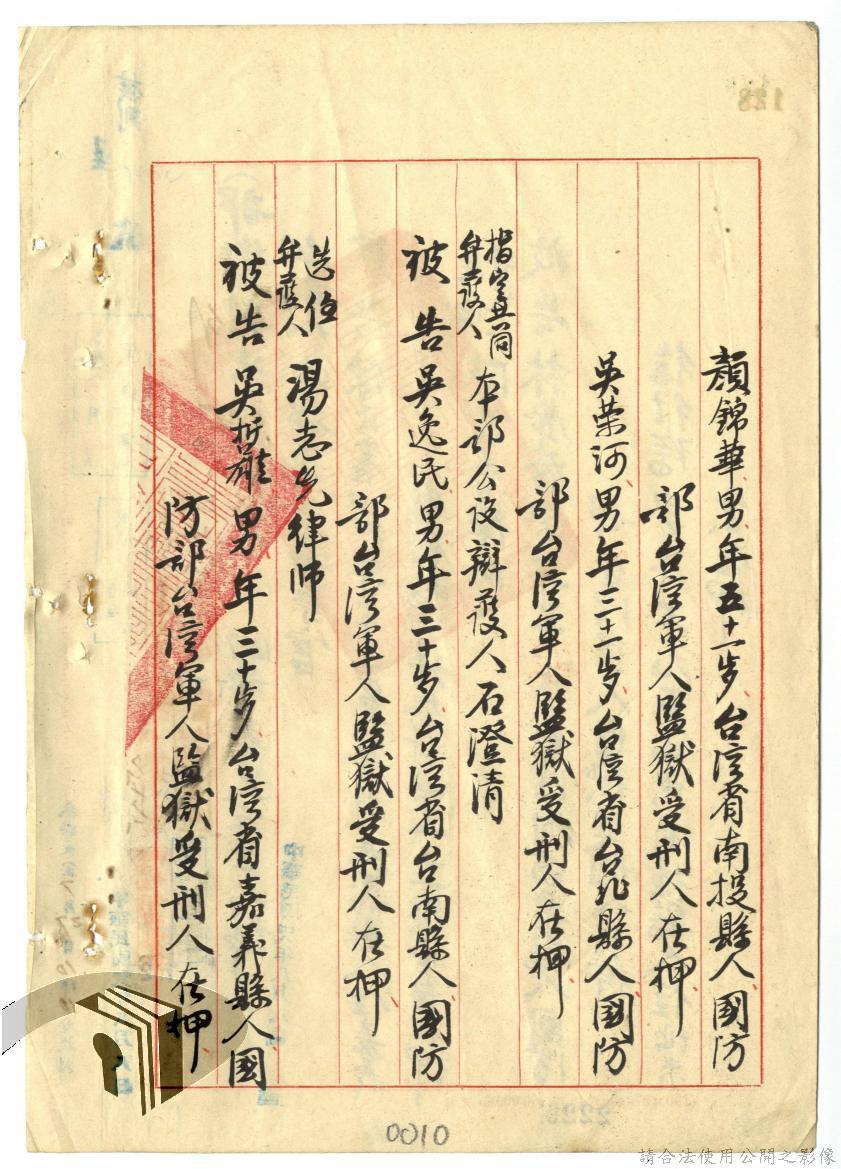 顏錦華男年五十一歩台湾省南投縣人國防
部台湾軍人監獄受刑人在押
吳荣河男年三十一歩台湾省台北縣人國防
部台湾軍人監獄受刑人在押
指定蓝
弁護人 本部公设辯護人石澄清
被告吳逸民男年三十歩台湾省台南縣人國防
部台湾軍人監獄受刑人在押
选任
弁護人 湯志先律师
被告吳
雄男年三十歩台湾省嘉義縣人國
防部台湾軍人監獄受刑人在押
0010
請合法使用公開之影像